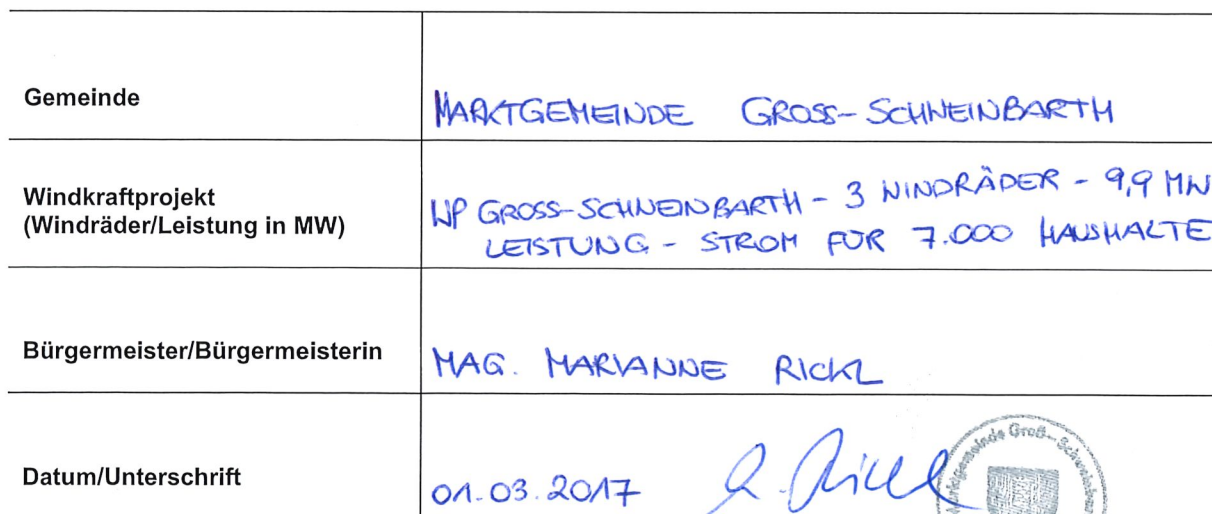 Gemeinde
MARKTGEMEINDE GROSS-SCHWEINBARTH
Windkraftprojekt
(Windräder/Leistung in MW)
WP GROSS-SCHWEINBARTH - 3 WINDRÄDER - 9,9 MW
LEISTUNG - STROM FÜR 7.000 HAUSHALTE
Bürgermeister/Bürgermeisterin
MAG. MARIANNE RICKL
Datum/Unterschrift
01.03.2017 Rickl
Groß-Schweinba